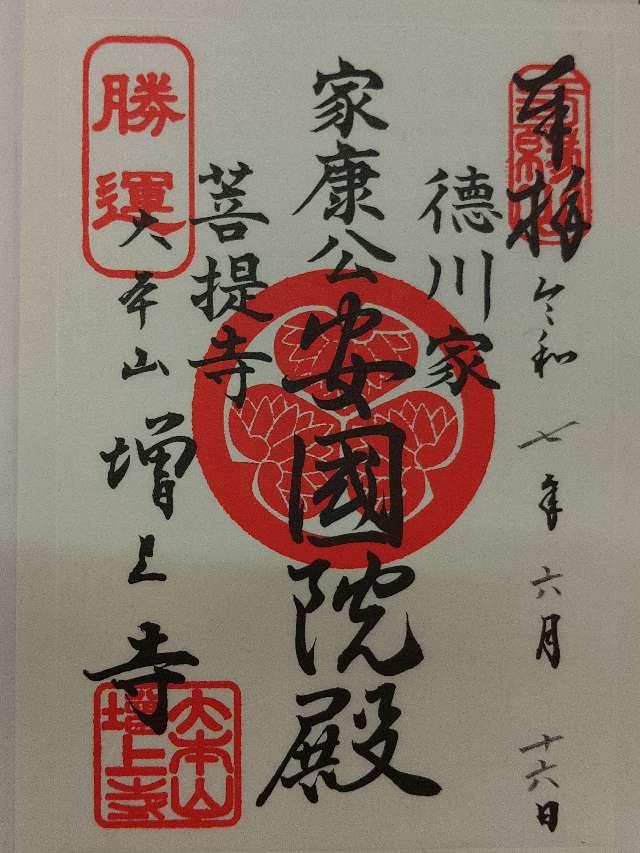 奉拝
令和七年六月十六日
德川家
家康公
安國院殿
菩提寺
勝運
大本山
增上寺
大本山
增上寺